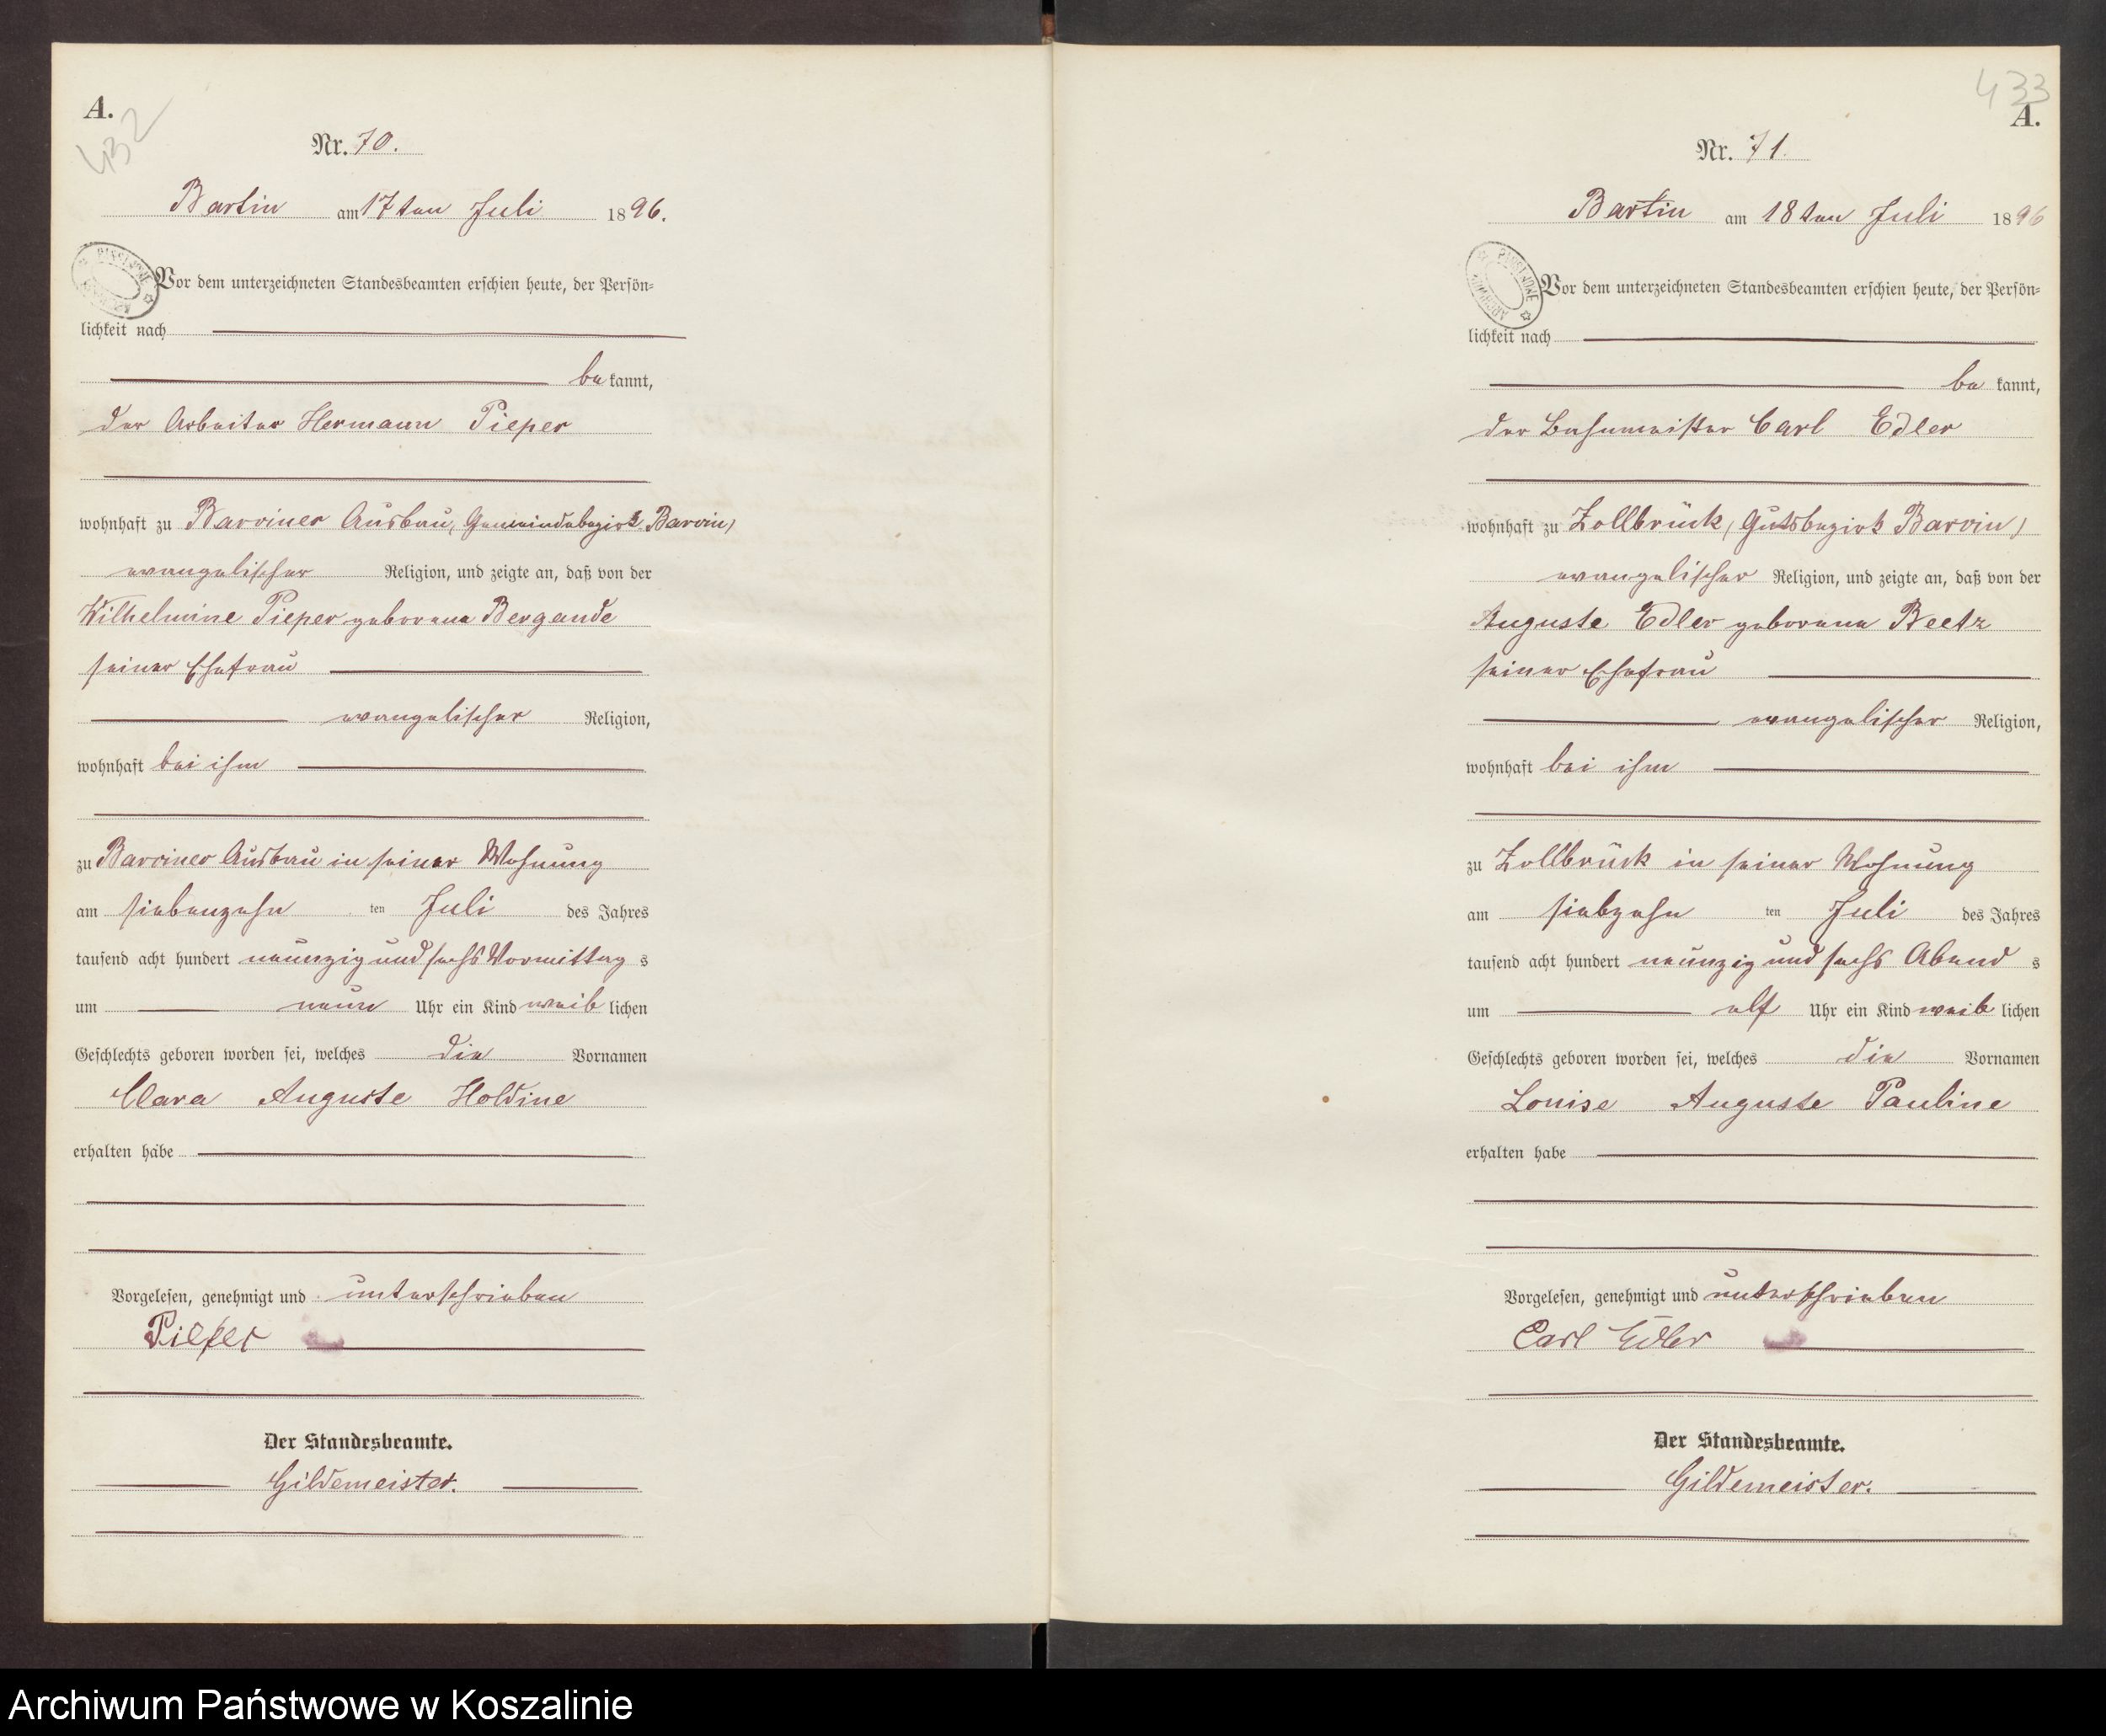 A.
432
Nr. 70.
Bartin am 17ten Juli 1896.
Vor dem unterzeichneten Standesbeamten erschien heute, der Persön-
lichkeit nach
bekannt,
der Arbeiter Hermann Pieper
wohnhaft zu Barviner Ausbau, Gemeindebezirk Barvin)
evangelischer Religion, und zeigte an, daß von der
Wilhelmine Pieper geborene Bergande
seiner Ehefrau
evangelischer Religion,
wohnhaft bei ihm
zu Barviner Ausbau in seiner Wohnung
am siebenzehn ten Juli des Jahres
tausend acht hundert neunzig und sechs Vormittag s
um neun Uhr ein Kind weiblichen
Geschlechts geboren worden sei, welches die Vornamen
Clara Auguste Holdine
erhalten habe
Vorgelesen, genehmigt und unterschrieben
Pieper
Der Standesbeamte.
Gildemeister.
433
A.
Nr. 71.
Bartin am 18ten Juli 1896
Vor dem unterzeichneten Standesbeamten erschien heute, der Persön-
lichkeit nach
bekannt,
der Carl Edler
wohnhaft zu Zollbrück (Gutsbezirk Barvin)
evangelischer Religion, und zeigte an, daß von der
Auguste Edler geborene Beetz
seiner Ehefrau
evangelischer Religion,
wohnhaft bei ihm
zu Zollbrück in seiner Wohnung
am siebzehn ten Juli des Jahres
tausend acht hundert neunzig und sechs Abend s
um elf Uhr ein Kind weiblichen
Geschlechts geboren worden sei, welches die Vornamen
Louise Auguste Pauline
erhalten habe
Vorgelesen, genehmigt und unterschrieben
Carl Edler
Der Standesbeamte.
Gildemeister.
Archiwum Państwowe w Koszalinie